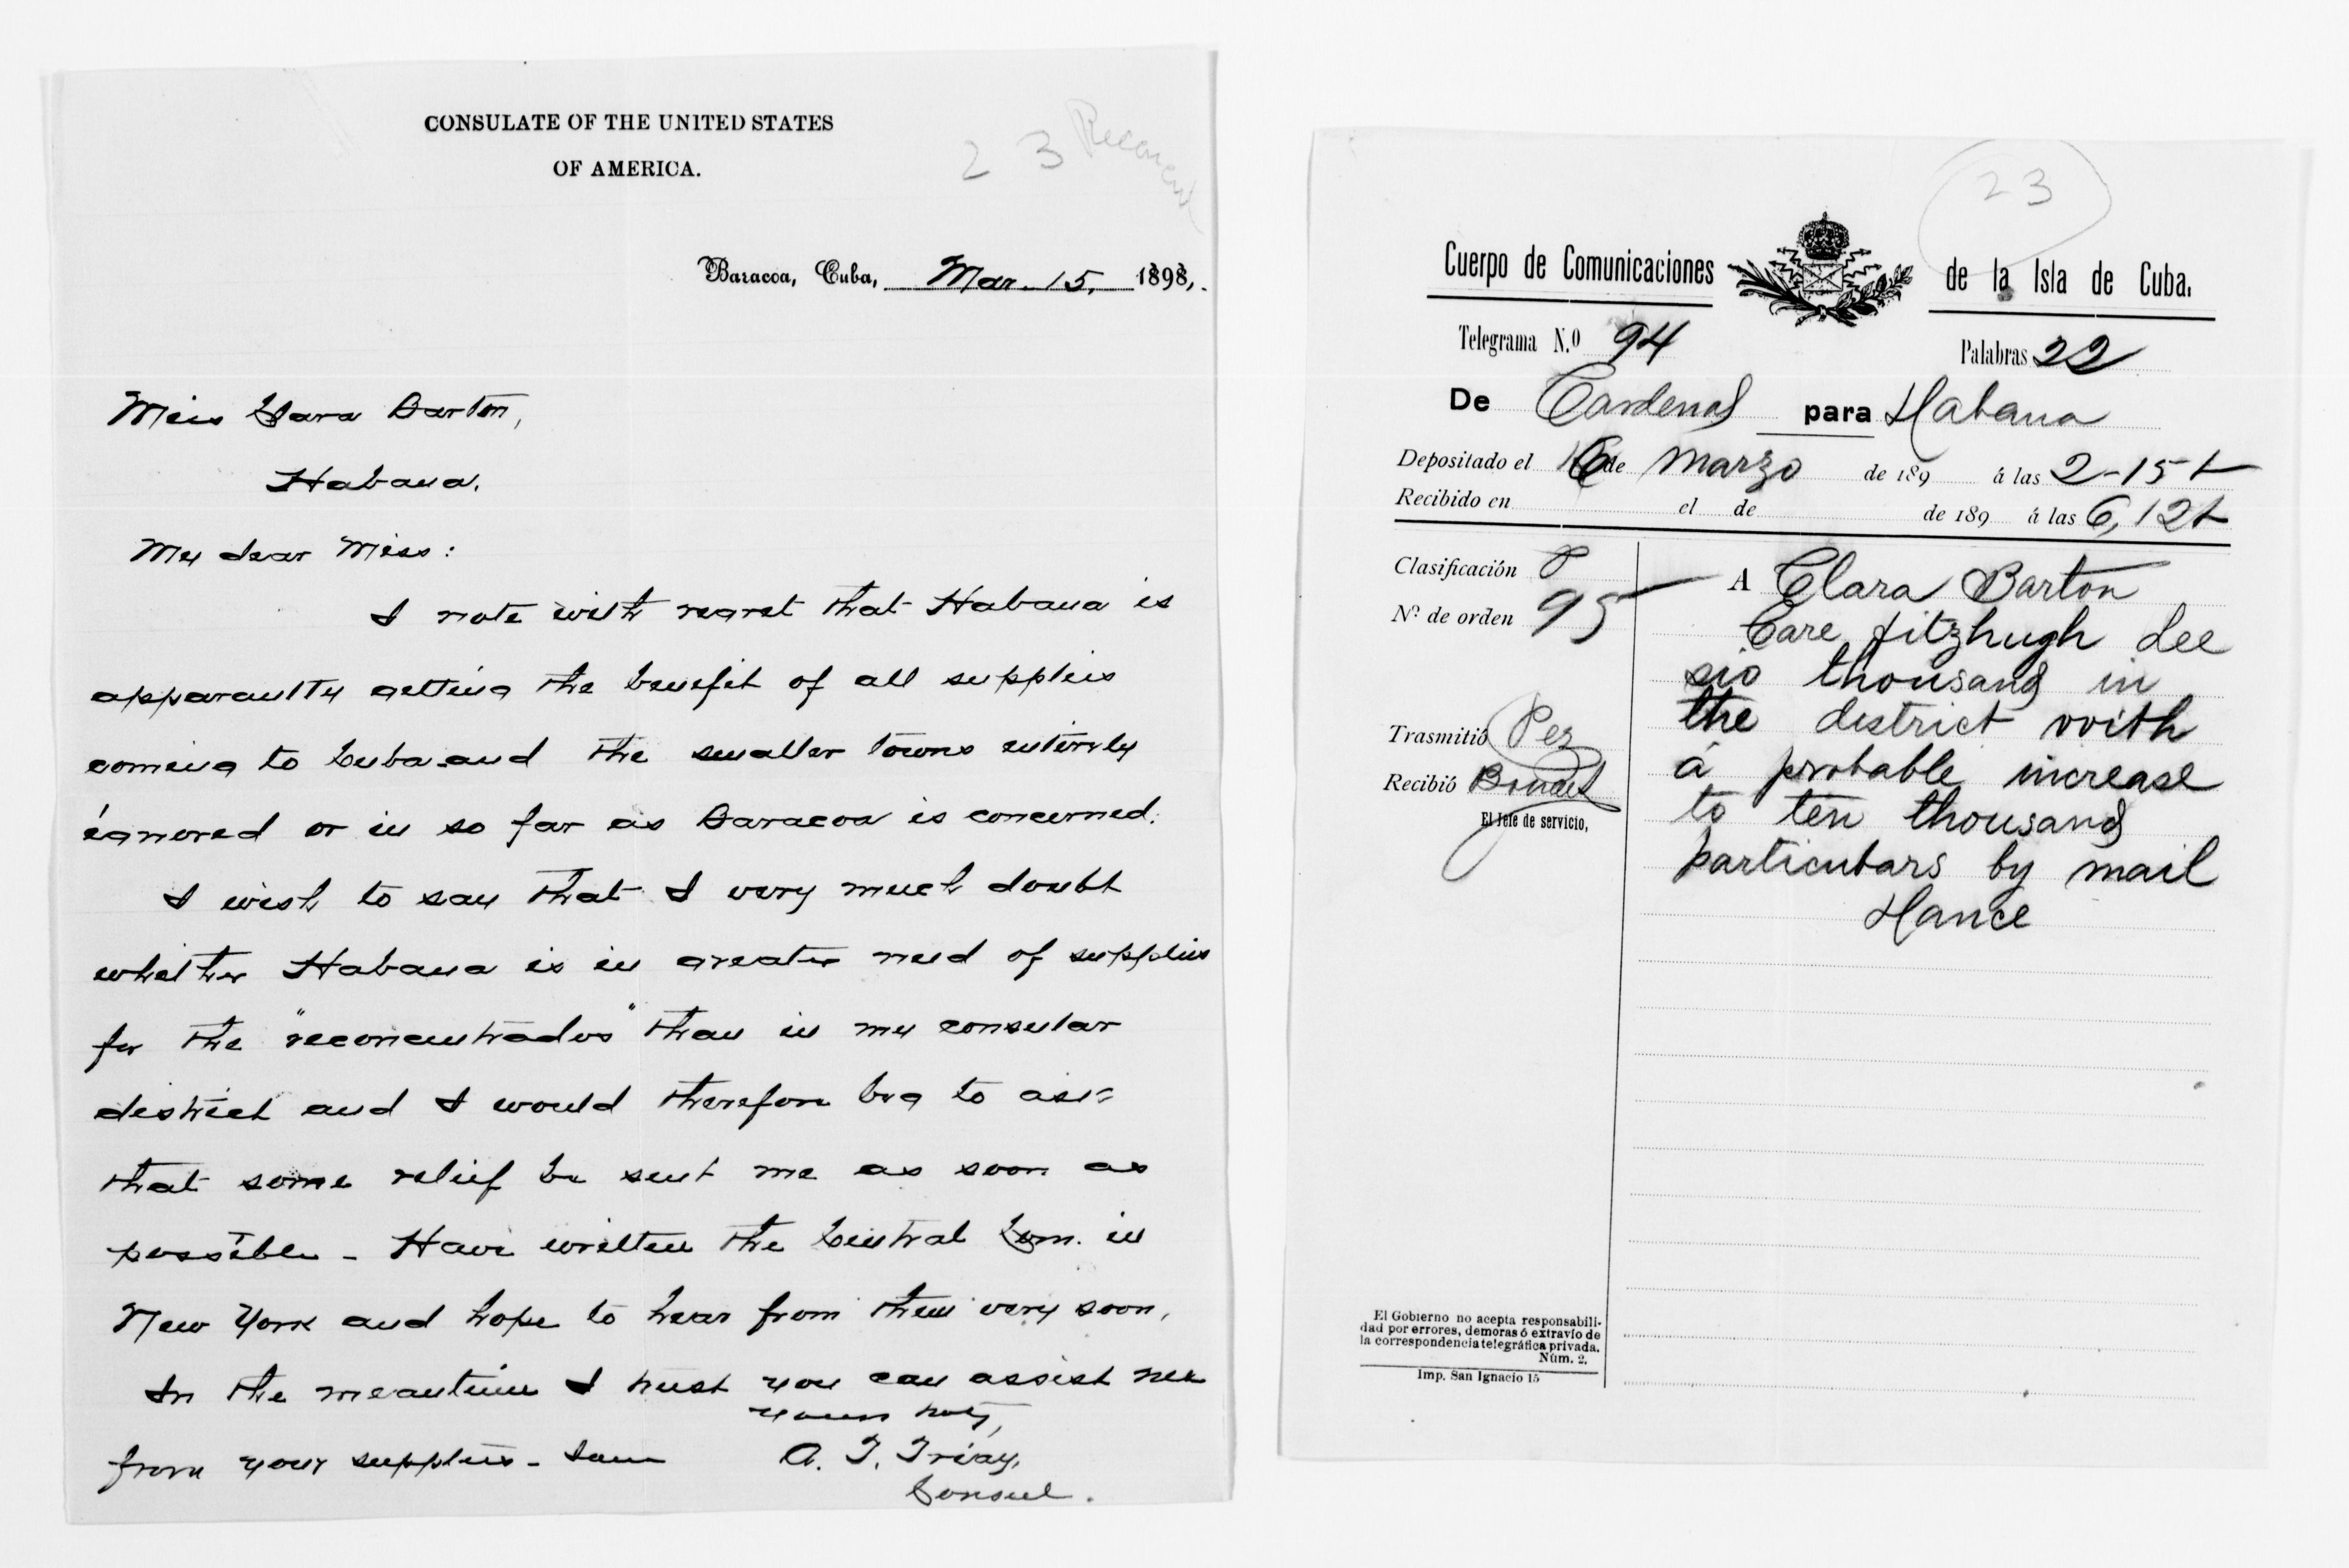 CONSULATE OF THE UNITED STATES
OF AMERICA.
2 3
Baracoa, Cuba, Mar. 15, 1898,.
Miss Clara Barton,
Habana.
My dear Miss:
I note with regret that Habana is
apparantly getting the benefit of all supplies
coming to Cuba and the smaller towns entirely
ignored or in so far as Baracoa is concerned.
I wish to say that I very much doubt
whether Habana is in greater need of supplies
for the "reconcentrados" than in my consular
district and I would therefore beg to ask
that some relief be sent me as soon as
possible - Have written the Central Com. in
New York and hope to hear from them very soon,
In the meantime I trust you can assist me
from your supplies - I am
Yours truly,
A. T. Triay,
Consul.
23
Cuerpo de Comunicaciones de la Isla de Cuba.
Telegrama N.o 94 Palabras 22
De Cardenas para Habana
Depositado el 16 de Marzo de 189 á las 2-15 t
Recibido en el de de 189 á las 6,12 t
Clasificación P
No. de orden 95
Trasmitió Pez
Recibió
El Jefe de servicio,
A Clara Barton
Care fitzhugh Lee
sio thousand in
the district with
á probable increase
to ten thousand
particulars by mail
Hance
El Gobierno no acepta responsabili-
dad por errores, demoras ó extravío de
la correspondencia telegráfica privada.
Núm. 2.
Imp. San Ignacio 15